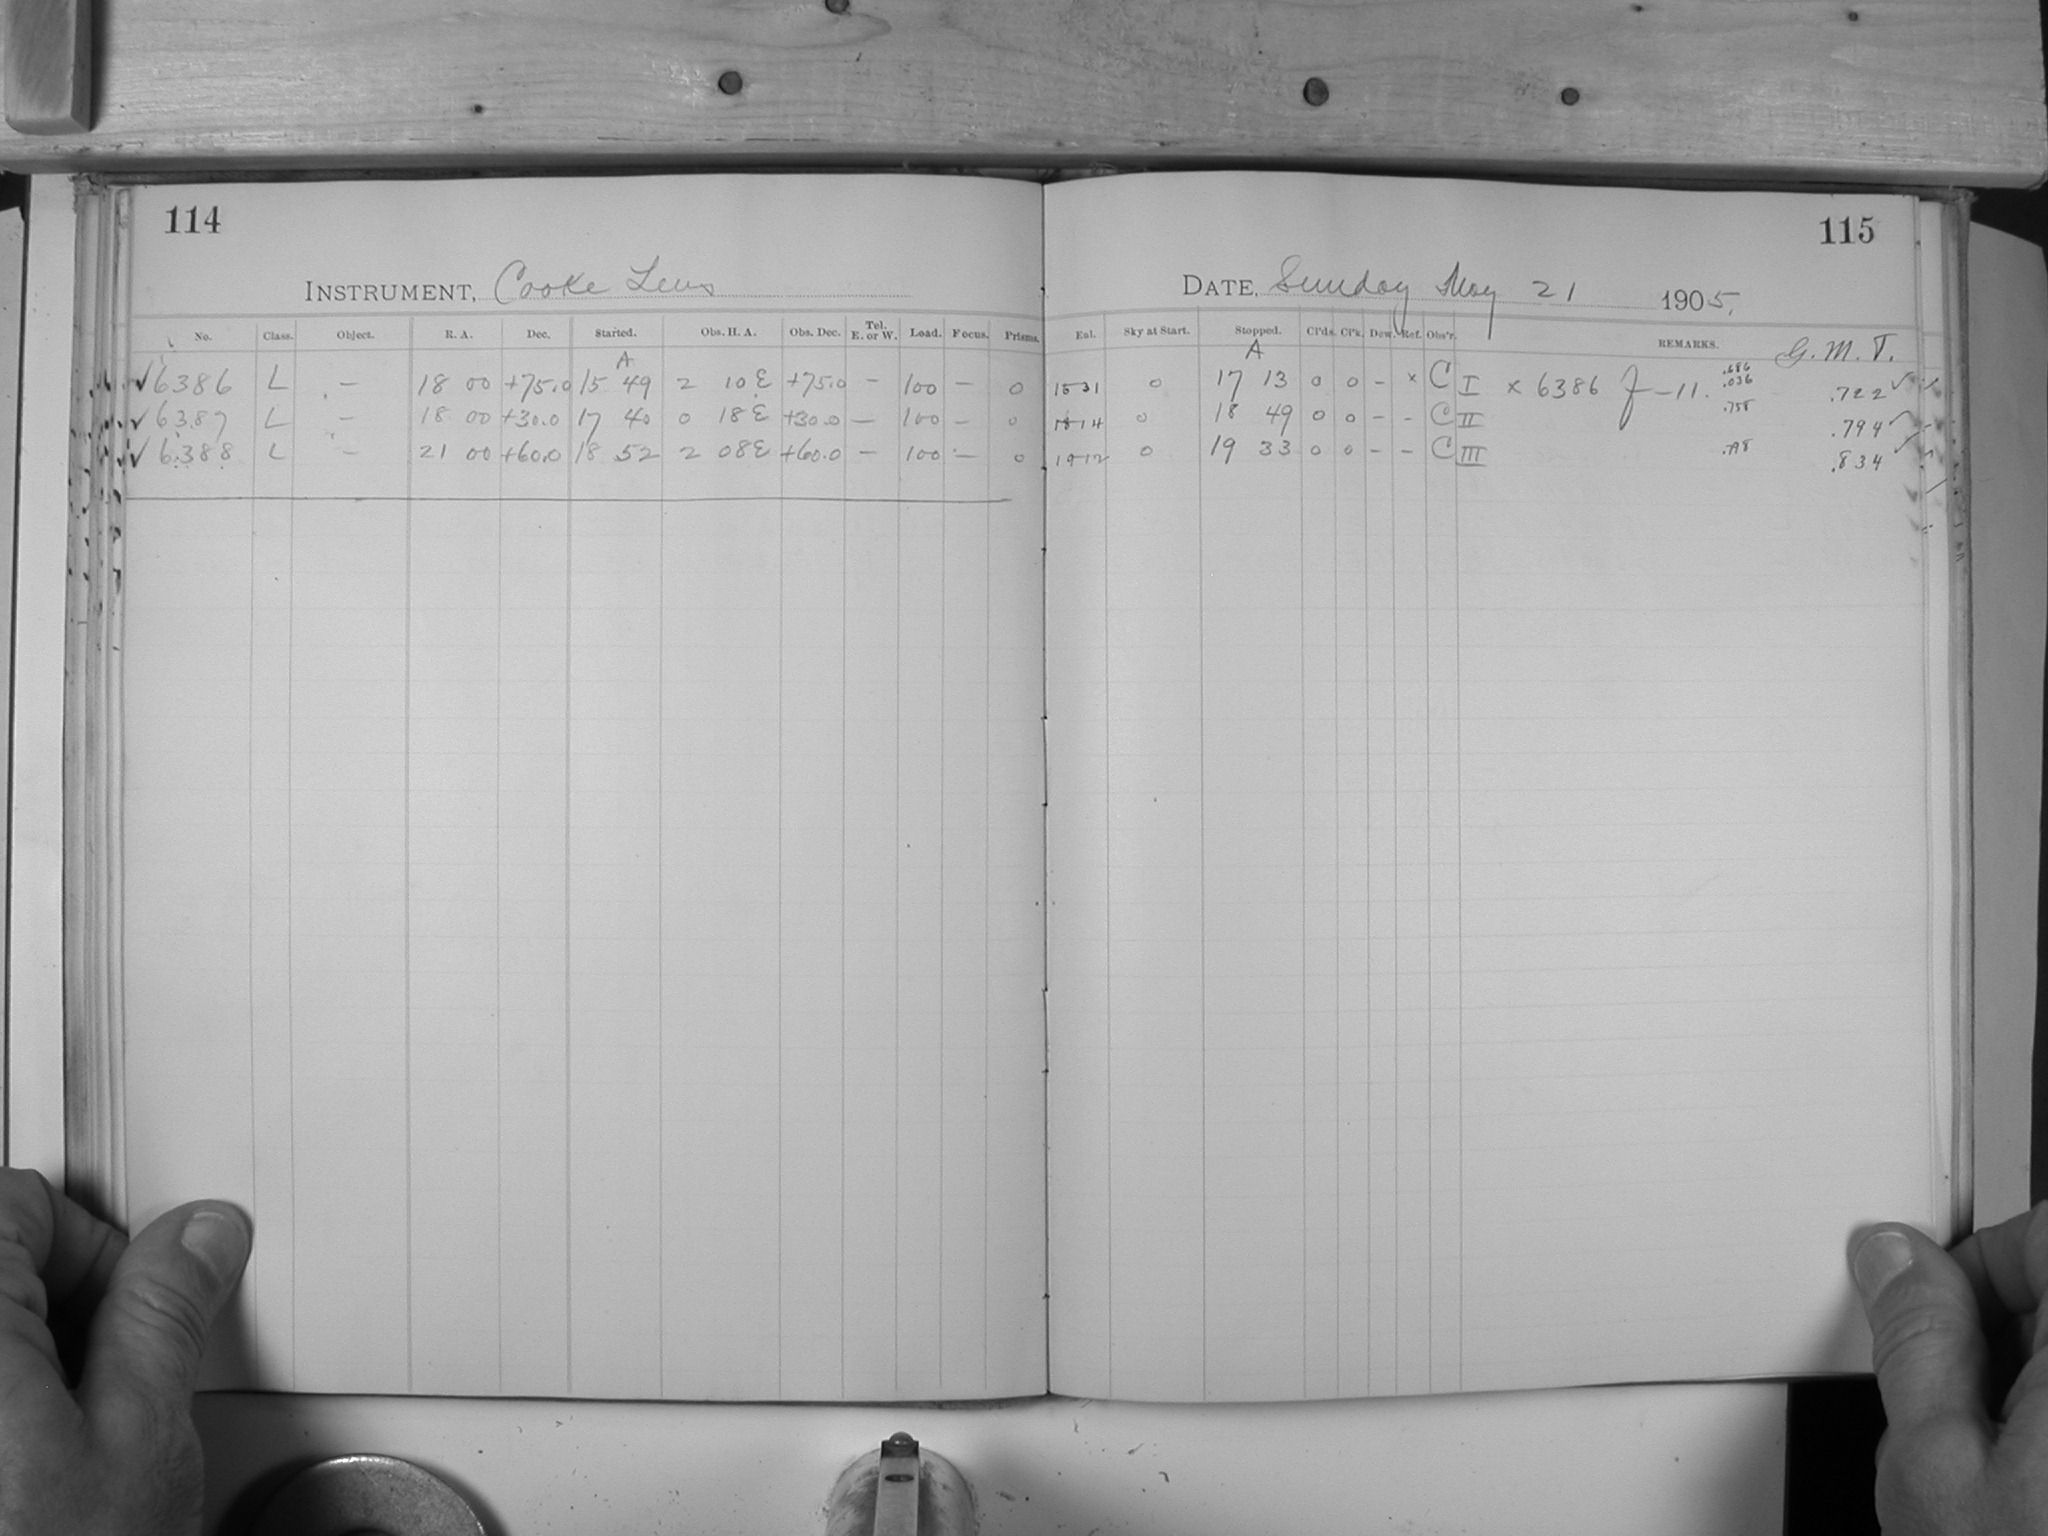 114
INSTRUMENT, Cooke Lens
No. Class. Object. R. A. Dec. Started. Obs. H. A. Obs. Dec. Tel. E. or W. Load. Focus. Prisms.
A
✓6386 L – 18 00 +75.0 15 49 2 10 E +75.0 – 100 – 0
✓6387 L – 18 00 +30.0 17 40 0 18 E +30.0 – 100 – 0
✓6388 L – 21 00 +60.0 18 52 2 08 E +60.0 – 100 – 0
115
DATE, Sunday May 21 1905,
Sky at Start. Stopped. Cl'ds. Cl'k. Dew. Ref. Obs'r. REMARKS. G. M. T.
A
1531 0 17 13 0 0 – × C I × 6386 –11. .686 .036 .722 ✓
1814 0 18 49 0 0 – – C II .758 .794 ✓
1912 0 19 33 0 0 – – C III .798 .834 ✓